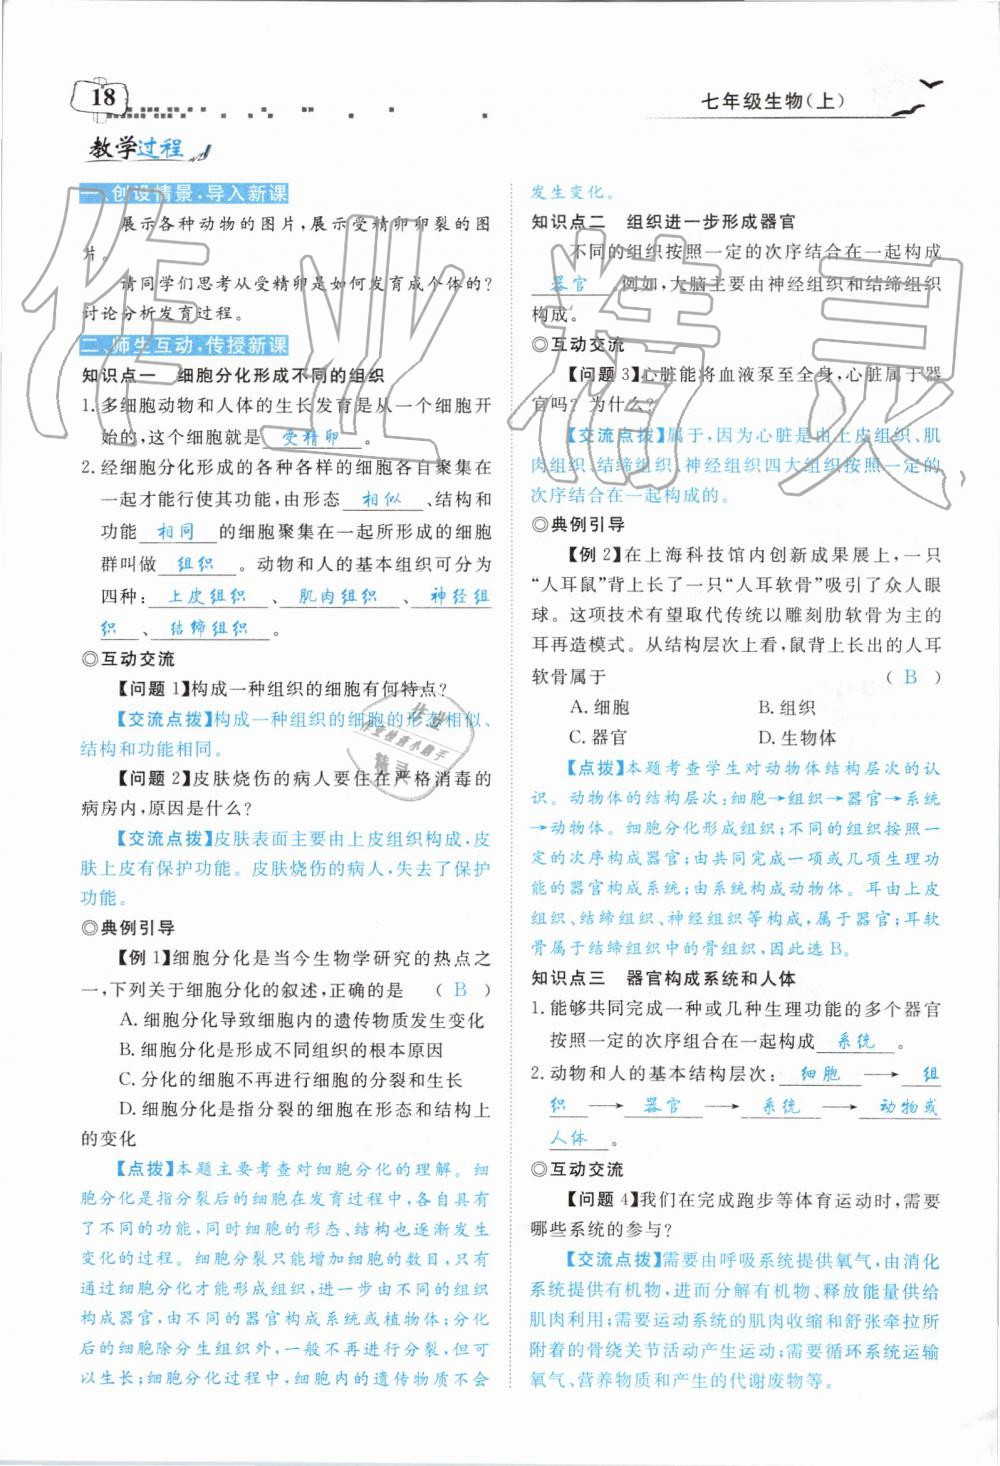 18
七年级生物(上)
教学过程
一、创设情景,导入新课
展示各种动物的图片,展示受精卵卵裂的图
片。
请同学们思考从受精卵是如何发育成个体的?
讨论分析发育过程。
二、师生互动,传授新课
知识点一 细胞分化形成不同的组织
1.多细胞动物和人体的生长发育是从一个细胞开
始的,这个细胞就是 受精卵 。
2.经细胞分化形成的各种各样的细胞各自聚集在
一起才能行使其功能,由形态 相似 、结构和
功能 相同 的细胞聚集在一起所形成的细胞
群叫做 组织 。动物和人的基本组织可分为
四种: 上皮组织 、 肌肉组织 、 神经组
织 、 结缔组织 。
◎互动交流
【问题1】构成一种组织的细胞有何特点?
【交流点拨】构成一种组织的细胞的形态相似、
结构和功能相同。
【问题2】皮肤烧伤的病人要住在严格消毒的
病房内,原因是什么?
【交流点拨】皮肤表面主要由上皮组织构成,皮
肤上皮有保护功能。皮肤烧伤的病人,失去了保护
功能。
◎典例引导
【例1】细胞分化是当今生物学研究的热点之
一,下列关于细胞分化的叙述,正确的是 ( B )
A.细胞分化导致细胞内的遗传物质发生变化
B.细胞分化是形成不同组织的根本原因
C.分化的细胞不再进行细胞的分裂和生长
D.细胞分化是指分裂的细胞在形态和结构上
的变化
【点拨】本题主要考查对细胞分化的理解。细
胞分化是指分裂后的细胞在发育过程中,各自具有
了不同的功能,同时细胞的形态、结构也逐渐发生
变化的过程。细胞分裂只能增加细胞的数目,只有
通过细胞分化才能形成组织,进一步由不同的组织
构成器官,由不同的器官构成动物或植物体;分化
后的细胞除分生组织外,一般不再进行分裂,但可
以生长;细胞分化过程中,细胞内的遗传物质不会
发生变化。
知识点二 组织进一步形成器官
不同的组织按照一定的次序结合在一起构成
器官 。例如,大脑主要由神经组织和结缔组织
构成。
◎互动交流
【问题3】心脏能将血液泵至全身,心脏属于器
官吗?为什么?
【交流点拨】属于,因为心脏是由上皮组织、肌
肉组织、结缔组织、神经组织四大组织按照一定的
次序结合在一起构成的。
◎典例引导
【例2】在上海科技馆内创新成果展上,一只
“人耳鼠”背上长了一只“人耳软骨”吸引了众人眼
球。这项技术有望取代传统以雕刻肋软骨为主的
耳再造模式。从结构层次上看,鼠背上长出的人耳
软骨属于 ( B )
A.细胞 B.组织
C.器官 D.生物体
【点拨】本题考查学生对动物体结构层次的认
识。动物体的结构层次:细胞→组织→器官→系统
→动物体。细胞分化形成组织;不同的组织按照一
定的次序构成器官;由共同完成一项或几项生理功
能的器官构成系统;由系统构成动物体。耳由上皮
组织、结缔组织、神经组织等构成,属于器官;耳软
骨属于结缔组织中的骨组织,因此选B。
知识点三 器官构成系统和人体
1.能够共同完成一种或几种生理功能的多个器官
按照一定的次序组合在一起构成 系统 。
2.动物和人的基本结构层次: 细胞 → 组
织 → 器官 → 系统 → 动物或
人体 。
◎互动交流
【问题4】我们在完成跑步等体育运动时,需要
哪些系统的参与?
【交流点拨】需要由呼吸系统提供氧气,由消化
系统提供有机物,进而分解有机物、释放能量供给
肌肉利用;需要运动系统的肌肉收缩和舒张牵拉所
附着的骨绕关节活动产生运动;需要循环系统运输
氧气、营养物质和产生的代谢废物等。
作业精灵
作业
作业检查小助手
精灵